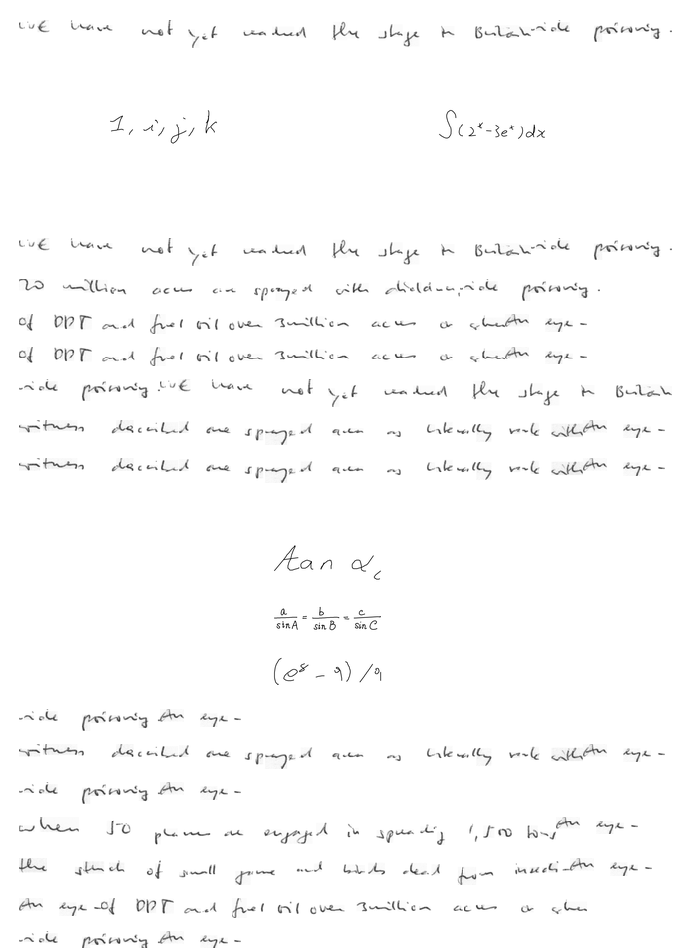 we have not yet reached the stage in Britain -ide poisoning.
1, i, j, k
∫(2^x-3e^x)dx
we have not yet reached the stage in Britain -ide poisoning.
20 million acres are sprayed with -ide poisoning.
of DDT and fuel oil over 3 million acres or when An eye-
of DDT and fuel oil over 3 million acres or when An eye-
-ide poisoning. we have not yet reached the stage in Britain
witness described one sprayed area as literally with An eye-
witness described one sprayed area as literally with An eye-
tan α_c
a/sinA = b/sinB = c/sinC
(e^8 - 9) / 9
-ide poisoning An eye-
witness described one sprayed area as literally with An eye-
-ide poisoning An eye-
when 50 planes are engaged in spreading 1,500 tons An eye-
the stench of small game and birds dead from insecti- An eye-
An eye- of DDT and fuel oil over 3 million acres or when
-ide poisoning An eye-